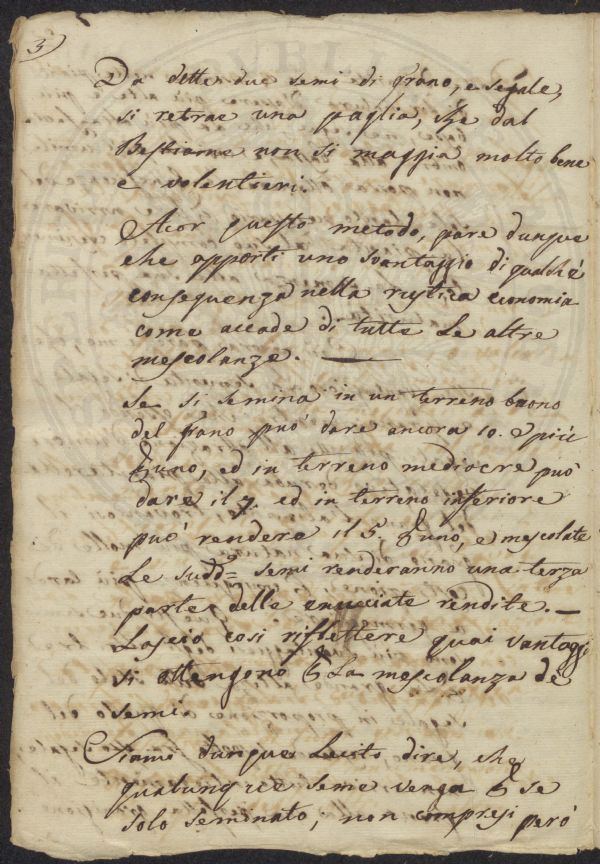 3)
Da dette due semi di grano, e segale,
si retrae una paglia, che dal
Bestiame non si maggia molto bene
e volentieri
Acor questo metodo, pare dunque
che apporti uno svantaggio di qualche
consequenza nella rustica economia
come accade di tutte Le altre
mescolanze. —
Se si semina in un terreno buono
del grano può dare ancora 10. e più
uno, ed in terreno mediocre può
dare il 7. ed in terreno inferiore
può rendere il 5. uno, e mescolate
Le sudde semi renderanno una terza
parte delle enucciate rendite. —
Lascio cosi riflettere quai vantaggi
si ottengono La mescolanza de
semi
Siami dunque Lecito dire, che
qualunque seme venga se
solo seminato, non compresi però